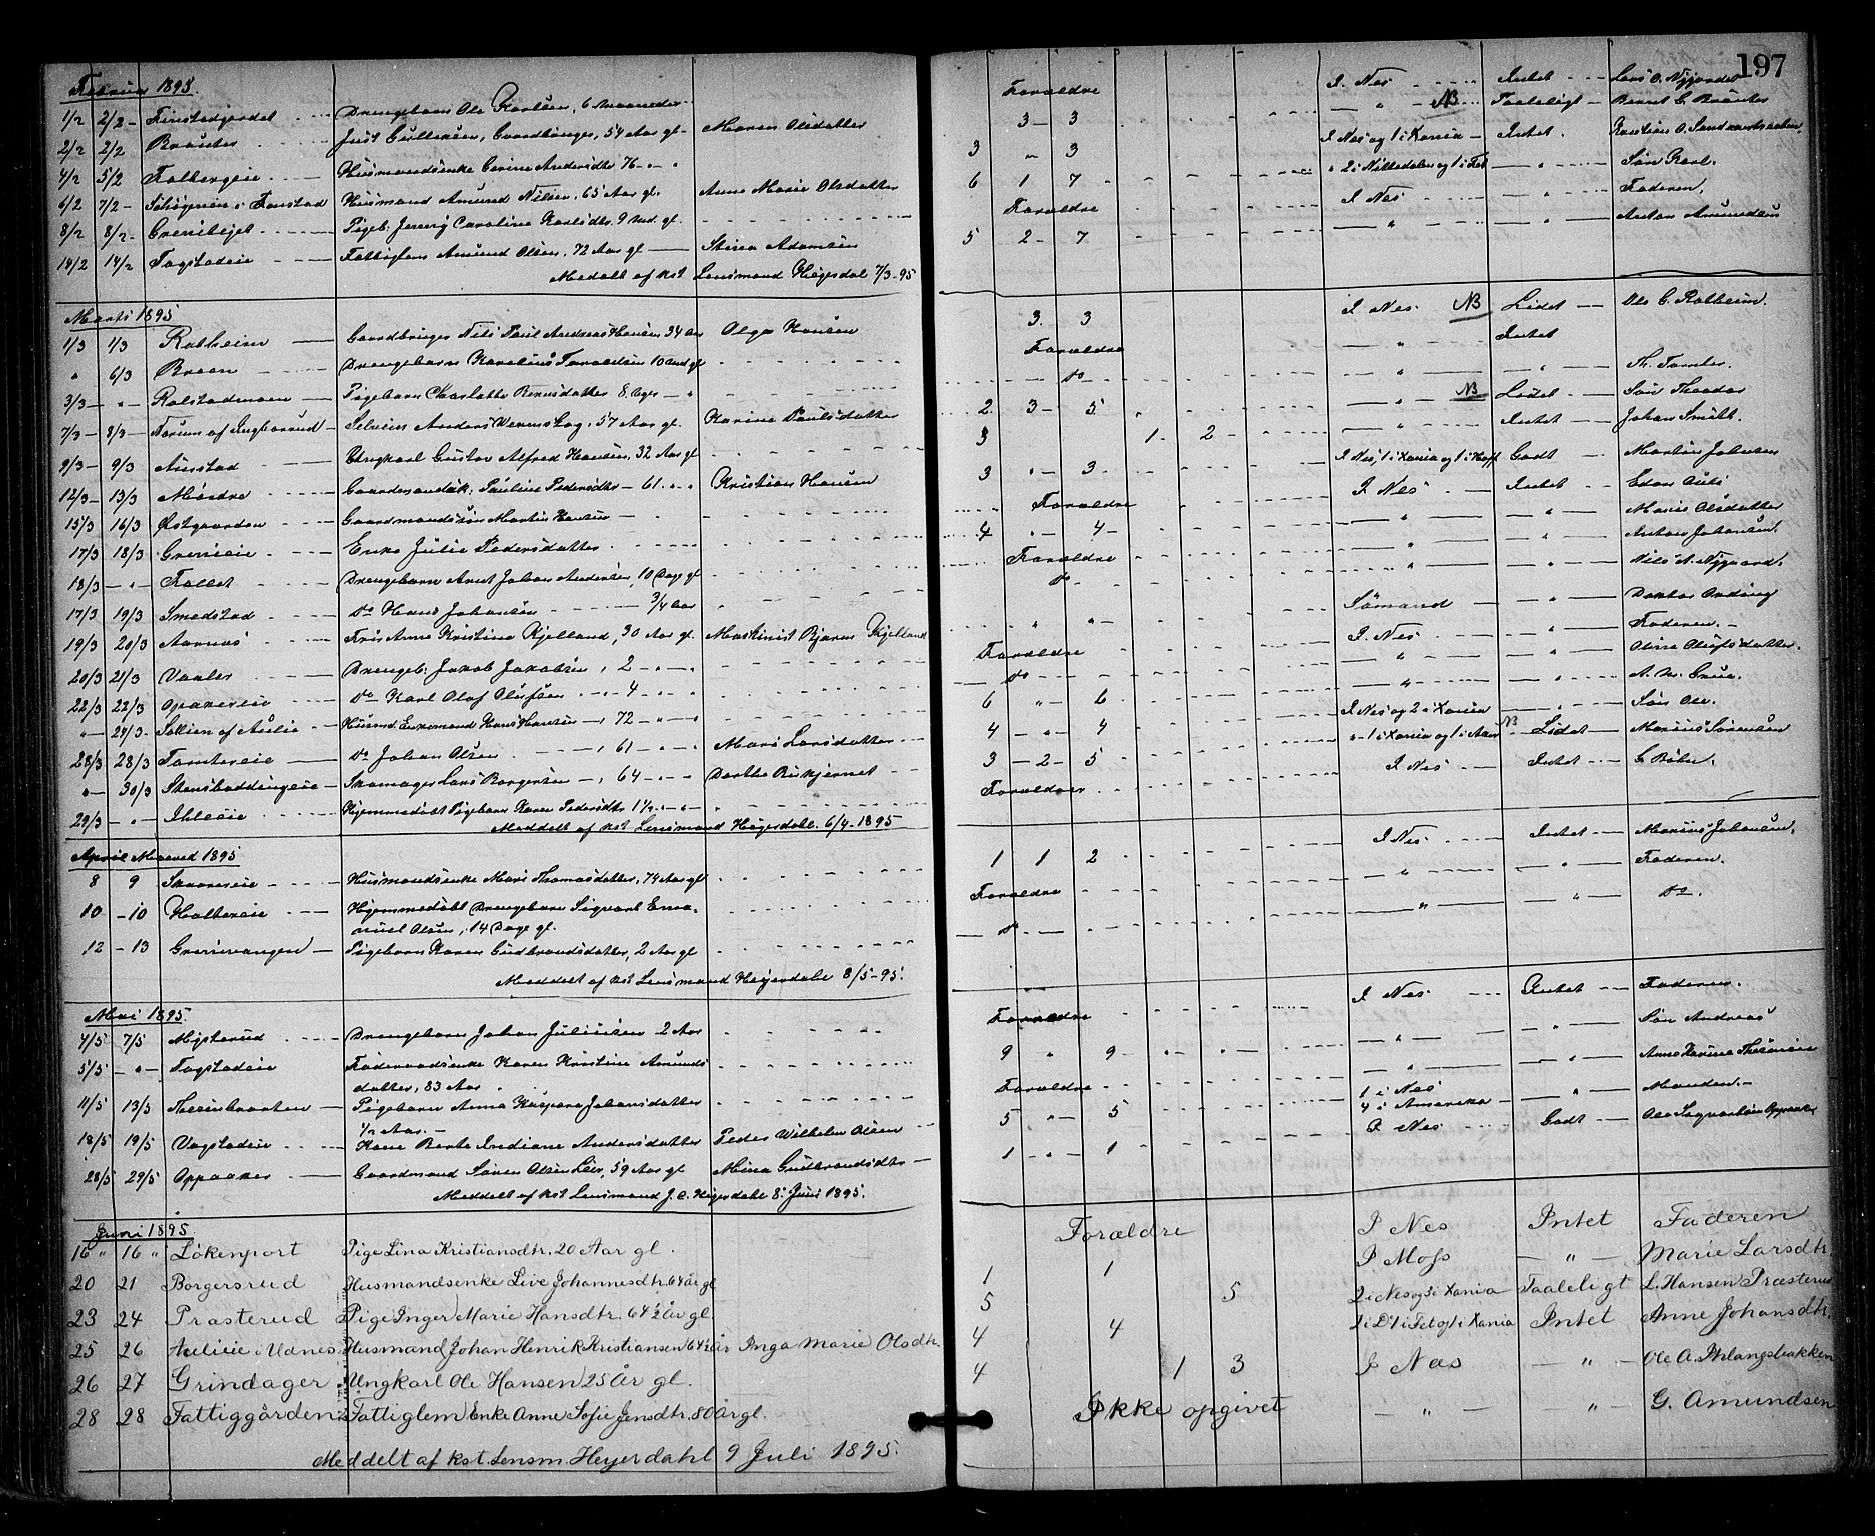 197
Februar 1895.
1/2 2/2 - Finstadjordet Drengebarn Ole Karlsen, 6 Maaneder Forældre I Nes Intet Lars O. Nygardet
2/2 2/2 Braaten Gaardbruger, 54 Aar gl. Maren Olsdatter 3 - 3 — " — NB Taaleligt - Bernt G. Braaten
4/2 5/2 Husmandsenke Andersdtr 76 - " - " 3 " 3 I Nes og 1 i Xania - Intet.
6/2 7/2 - i Fonstad Husmand Amund Nilsen, 65 Aar gl. Anne Marie Olsdatter 6 1 7 " 2 i Nittedalen og 1 i Fet — " — Søn Karl.
8/2 8/2 - Pigeb. Jenny Caroline Karlsdtr. 9 Md. gl. Forældre I Nes — " — Faderen.
14/2 14/2 Fagstadeie Fattiglem Amund Olsen, 72 Aar gl Adamsen 5 2 - 7 — " — — " — Anton Amundsen
Meddelt af kst Lensmand Heyerdal 7/3-95
Marts 1895
1/3 1/3 Rotheim Gaardbruger Nils Paul Andreas Hansen 34 Aar Olga Hansen 3. 3 I Nes NB Lidet — Ole C. Rotheim.
" 6/3 Braaen Drengebarn Karelius Taraldsen 10 Md gl Forældre — " — Intet
3/3 - " - Rolstadmoen Pigebarn Charlotte Berntsdatter 8 Dage - " do — " — — " — Th. Tomter.
7/3 - 8/3 - Selveier Anders 57 Aar gl. Karine Paulsdatter 2. 3 - 5 — " — NB Lidet - Søn Theodor
9/3 - 9/3 - Austad Ungkarl Gustav Alfred Hansen, 32 Aar gl 3 1 - 2 — " — Intet - Johan Smith.
12/3 - 13/3 Mordre Gaardmandsk. Pauline Pedersdtr - 61 " " Kristian Hansen 3 " - 3 I Nes, 1 i Xania og 1 i Godt - Martin Johnsen
15/3 16/3 Østgaarden Gaardmandssøn Martin Hansen Forældre I Nes Intet Edon
17/3 18/3 Greneie Enke Julie Pedersdatter 4 " - 4 - — " — — " — Maris Olsdatter
18/3 - " - Fallet Drengebarn Arnt Johan Andersen, 10 Dage gl Forældre — " — — " — Anton Johansen.
17/3 19/3 Smedstad do Hans Johansen - 3/4 Aar do — " — — " — Nils N. Nygaard.
19/3 20/3 Aarnæs Fru Anna Kristine Kjelland, 30 Aar gl. Maskinist Bjarne Kjelland " " - Sømand — " — Doktor Ording
20/3 21/3 Vaaler Drengeb. Jakob Jakobsen, 2 - " - " Forældre I Nes — " — Faderen. -
22/3 22/3 Opakereie do Karl Olaf Olufsen - " 4 - " - " do — " — — " — Oline Olufsdatter.
" - 24/3 - Husmd. Enkemand Hans Hansen - 72 - " - " 6 " - 6 — " — — " — A. M. Grue.
28/3 28/3 Tomtereie do Johan Olsen - 61 - " - " Mari Larsdatter 4 - " - 4 I Nes og 2 i Xania — " — Søn Ole.
" - 30/3 Skomager Lars Borgersen - 64 - " - " Dorthe 3 - 2 - 5 " - 1 i Xania og 1 i NB Lidet - Marius Sørensen
29/3 - " - Ihleeie Hjemmedøbt Pigebarn Karen Pedersdtr 1 1/2 " - " - Forældre I Nes Intet G. Bøhn.
Meddelt af kst Lensmand Heyerdahl. 6/4-1895
April Maaned 1895
8 9 Skaareeie Husmandsenke Mari Thomasdatter, 74 Aar gl 1 1 2 I Nes Intet Marius Johansen.
10 - 10 Holtereie Hjemmedøbt Drengebarn Sigvart Ema- Forældre — " — — " — Faderen.
nuel Olsen, 14 Dage gl.
12 - 13 Grønvangen Pigebarn Karen Gudbrandsdatter, 2 Aar gl do — " — — " — do.
Meddelt af kst Lensmand Heyerdahl 8/5-95.
Mai 1895.
4/5 7/5 Mysterud Drengebarn Johan Juliusen 2 Aar Forældre I Nes Intet Faderen.
5/5 - " - Fagstadeie Føderaadsenke Karen Kristine Amunds 9 " 9 — " — — " — Søn Andreas
datter, 83 Aar
11/5 13/5 Pigebarn Anna Kaspara Johansdatter Forældre — " — — " — Anne Karine
1/2 Aar. -
18/5 19/5 Vagstadeie Kone Berte Indiane Andersdatter Peder Wilhelm Olsen 5 " - 5 1 i Nes 4 i Amerika — " — Manden. -
28/5 29/5 Oppaaker Gaardmand Søren Olsen Lier, 59 Aar gl Mina Gudbrandsdtr 1 - " - 1 I Nes Godt Ole Sigvartsen Oppaaker
Meddelt af kst Lensmand J. C. Heyerdahl 8. Juni 1895.
Juni 1895
16 " 16 " Løkenport Pige Lina Kristiansdtr. 20 Aar gl. Forældre I Nes Intet Faderen
20 21 Borgersrud Husmandsenke Live Johannesdtr. 64 år gl 1 1 I Moss — " — Marie Larsdtr
23 24 Præsterud Pige Inger Marie Hansdtr. 64 1/2 År gl. 5 5 2 i Nes og 3 i Xania Taaleligt L. Hansen Præsterud
25 26 Aulieie i Udnes. Husmand Johan Henrik Kristiansen 64 1/2 år Inga Marie Olsdtr. 4 4 2 i Do 1 i Fet og 1 i Xania Intet Anne Johansdtr.
26 27 Grindager Ungkarl Ole Hansen 25 År gl. 4 1 3 I Næs — " — Ole A. Ihlangsbakken
28 28 Fattiggården Fattiglem Enke Anne Sofie Jensdtr. 80 år gl. Ikke opgivet — " — " — G. Amundsen
Meddelt af kst. Lensm. Heyerdahl 9 Juli 1895.